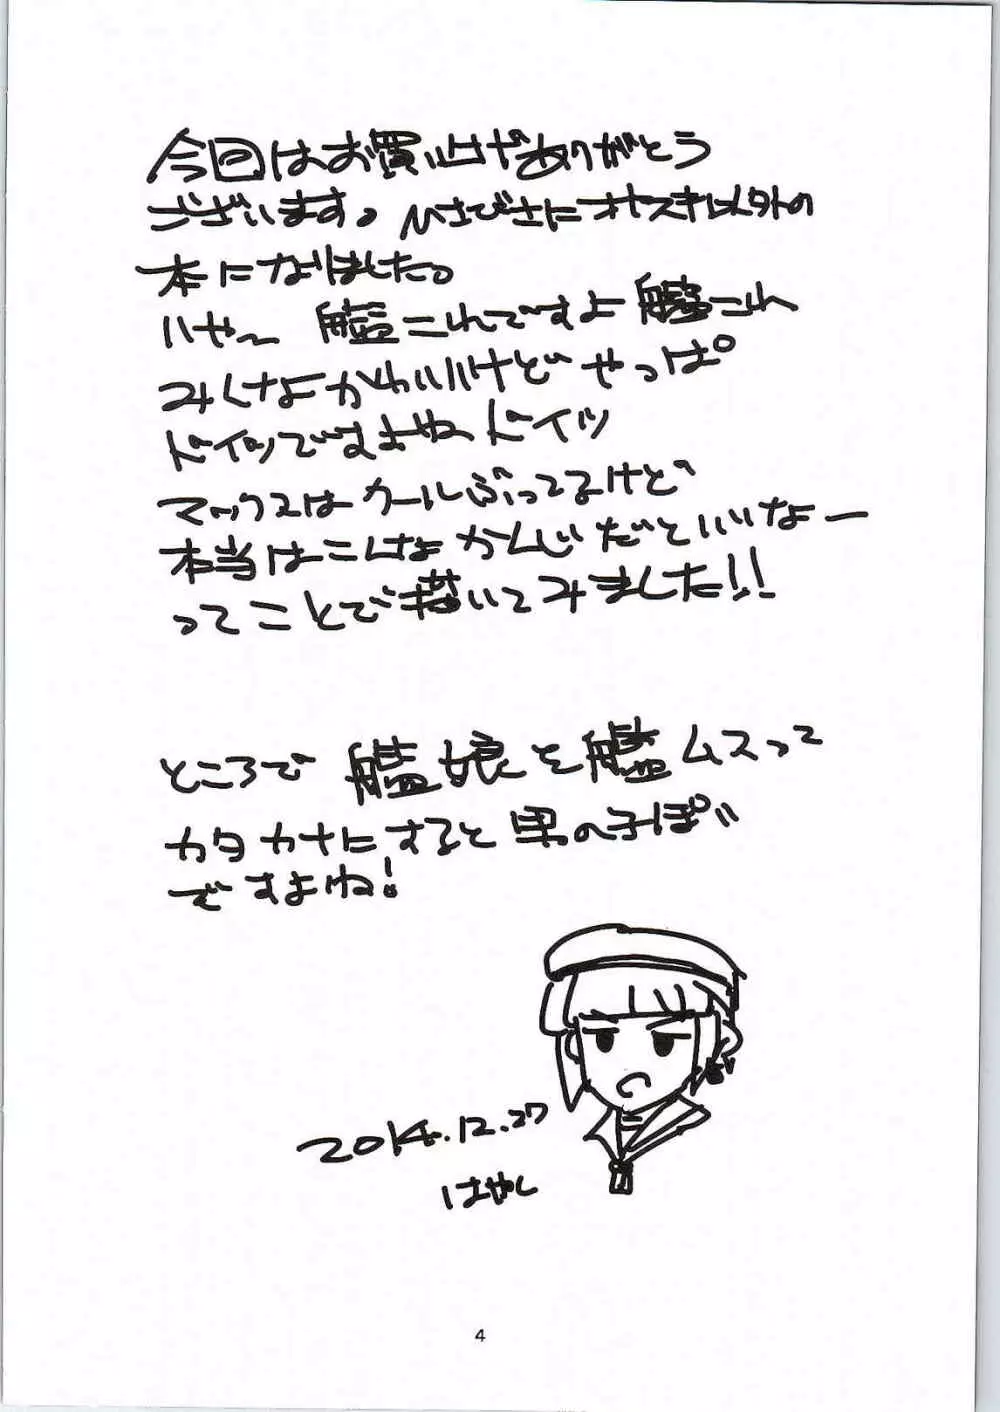 今回はお買い上げありがとう
ございます。ひさびさにオヤスキ以外の
本になりました。
いやー 艦これですよ艦これ
みんなかわいいけどやっぱ
ドイツですよねードイツ
マックスはクールぶってるけど
本当はこんなかんじだといいなー
ってことで描いてみました!!
ところで艦娘を艦ムスって
カタカナにすると男の子ぽい
ですよね!
2014.12.27
はやし
4